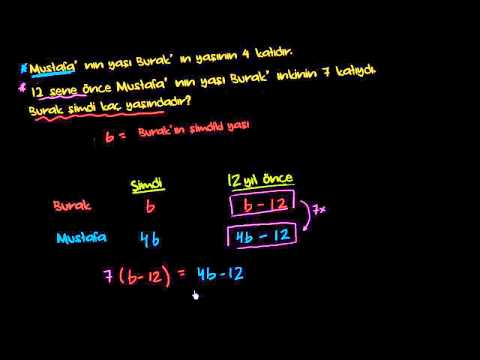 * Mustafa' nın yası Burak' ın yasının 4 katıdır.
* 12 sene önce Mustafa' nın yası Burak' ınkinin 7 katıydı.
Burak simdi kaç yasındadır?
b = Burak'ın simdiki yası
Simdi 12 yıl önce
Burak b b - 12
7x
Mustafa 4b 4b - 12
7 (b-12) = 4b-12